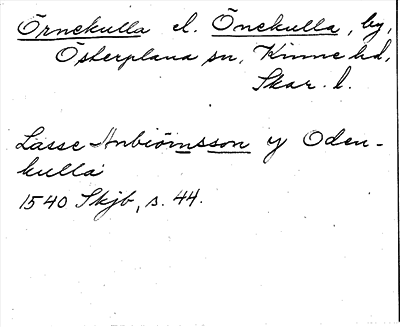 Örnekulla el. Önekulla, by,
Österplana sn, Kinne hd,
Skar. l.
Lasse Anbiörnsson y Oden-
kulla
1540 Skjb, s. 44.